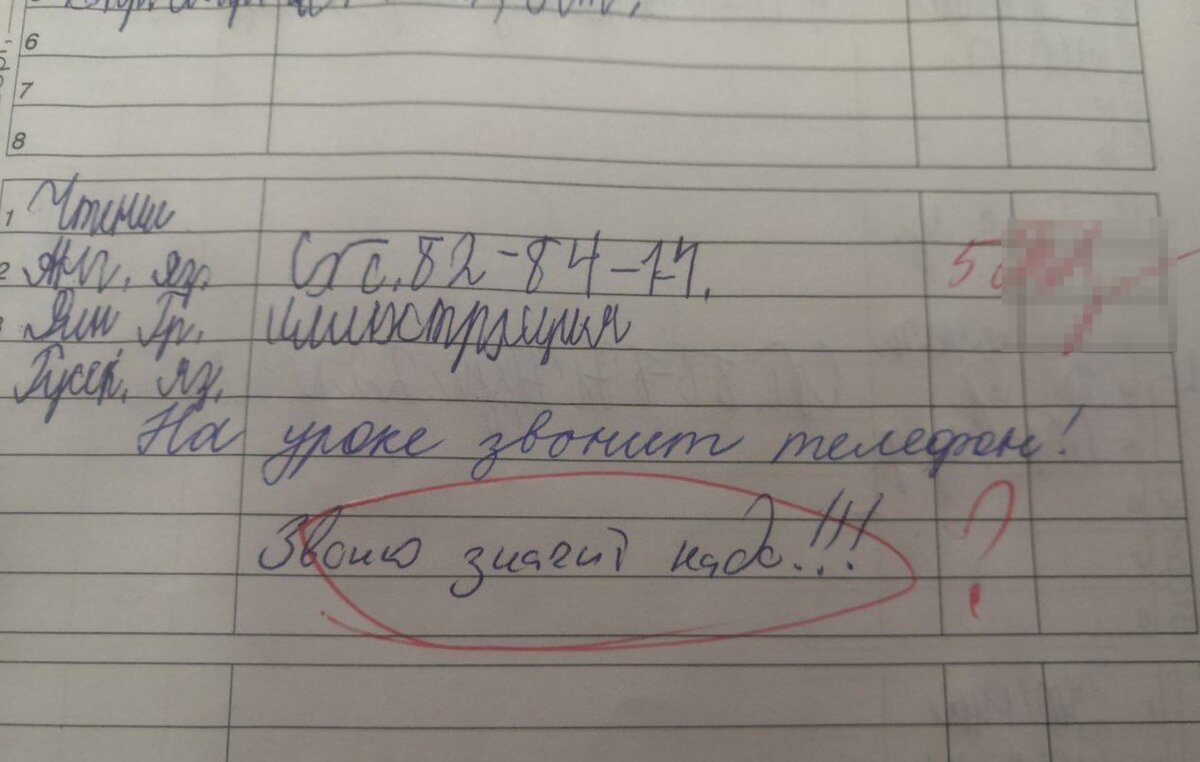 6
7
8
1 Чтение
2 Анг. яз. Стс. 82-84-
Гр. иллюстрация
Русск. яз.
На уроке звонит телефон!
Звоню значит надо!!!
?